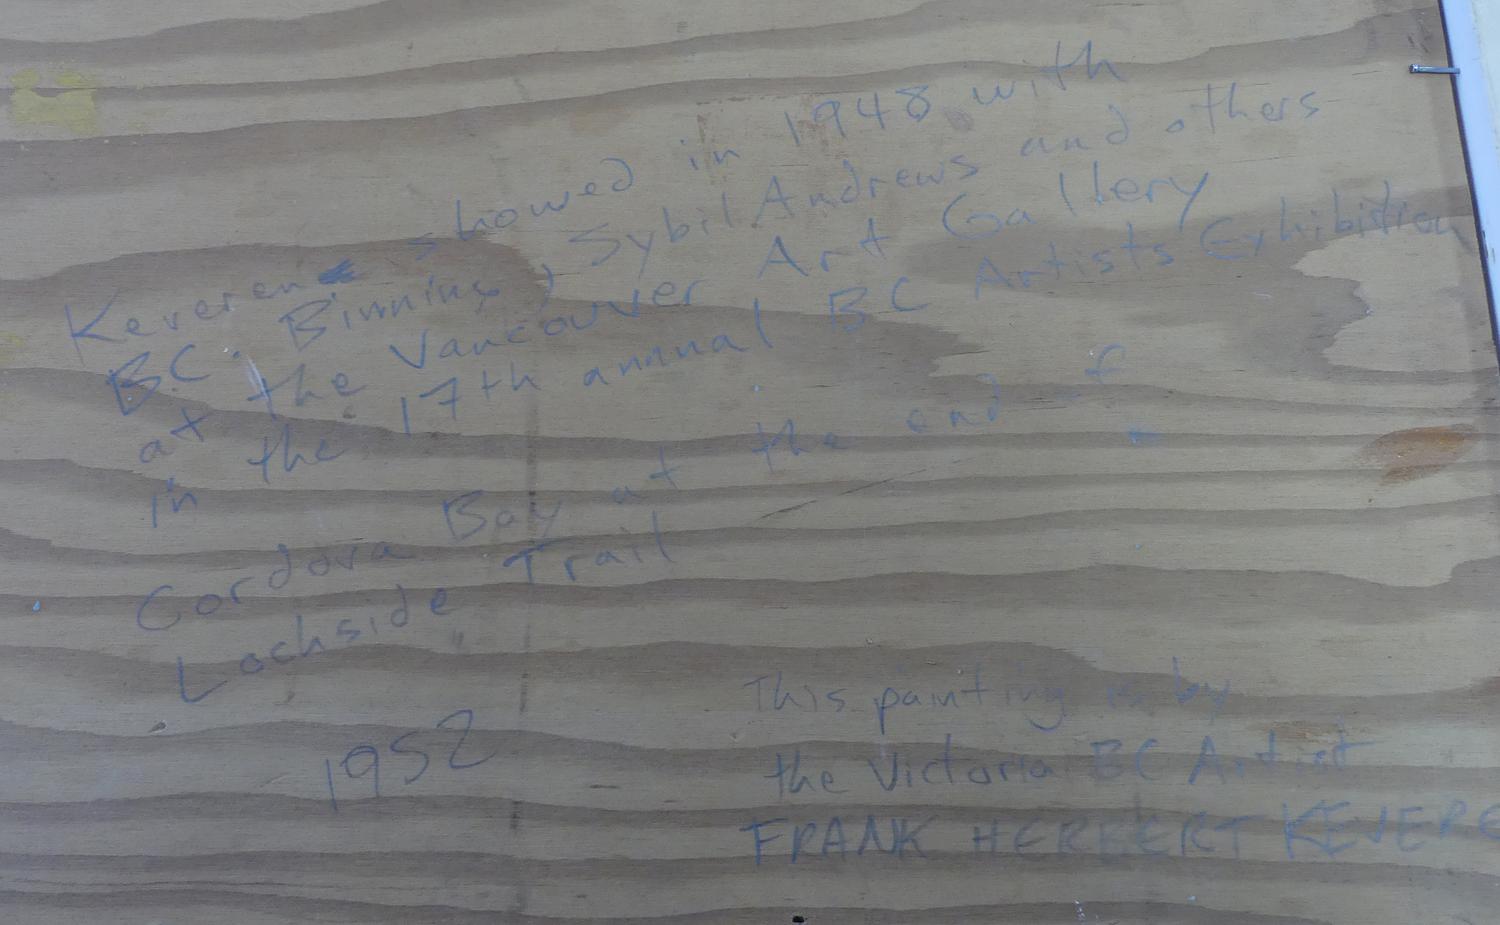 Keveren showed in 1948 with
BC. Binning, Sybil Andrews and others
at the Vancouver Art Gallery
in the 17th annual BC Artists Exhibition
Cordova Bay at the end of
Lochside Trail
1952
This painting is by
the Victoria BC Artist
FRANK HERBERT KEVERE